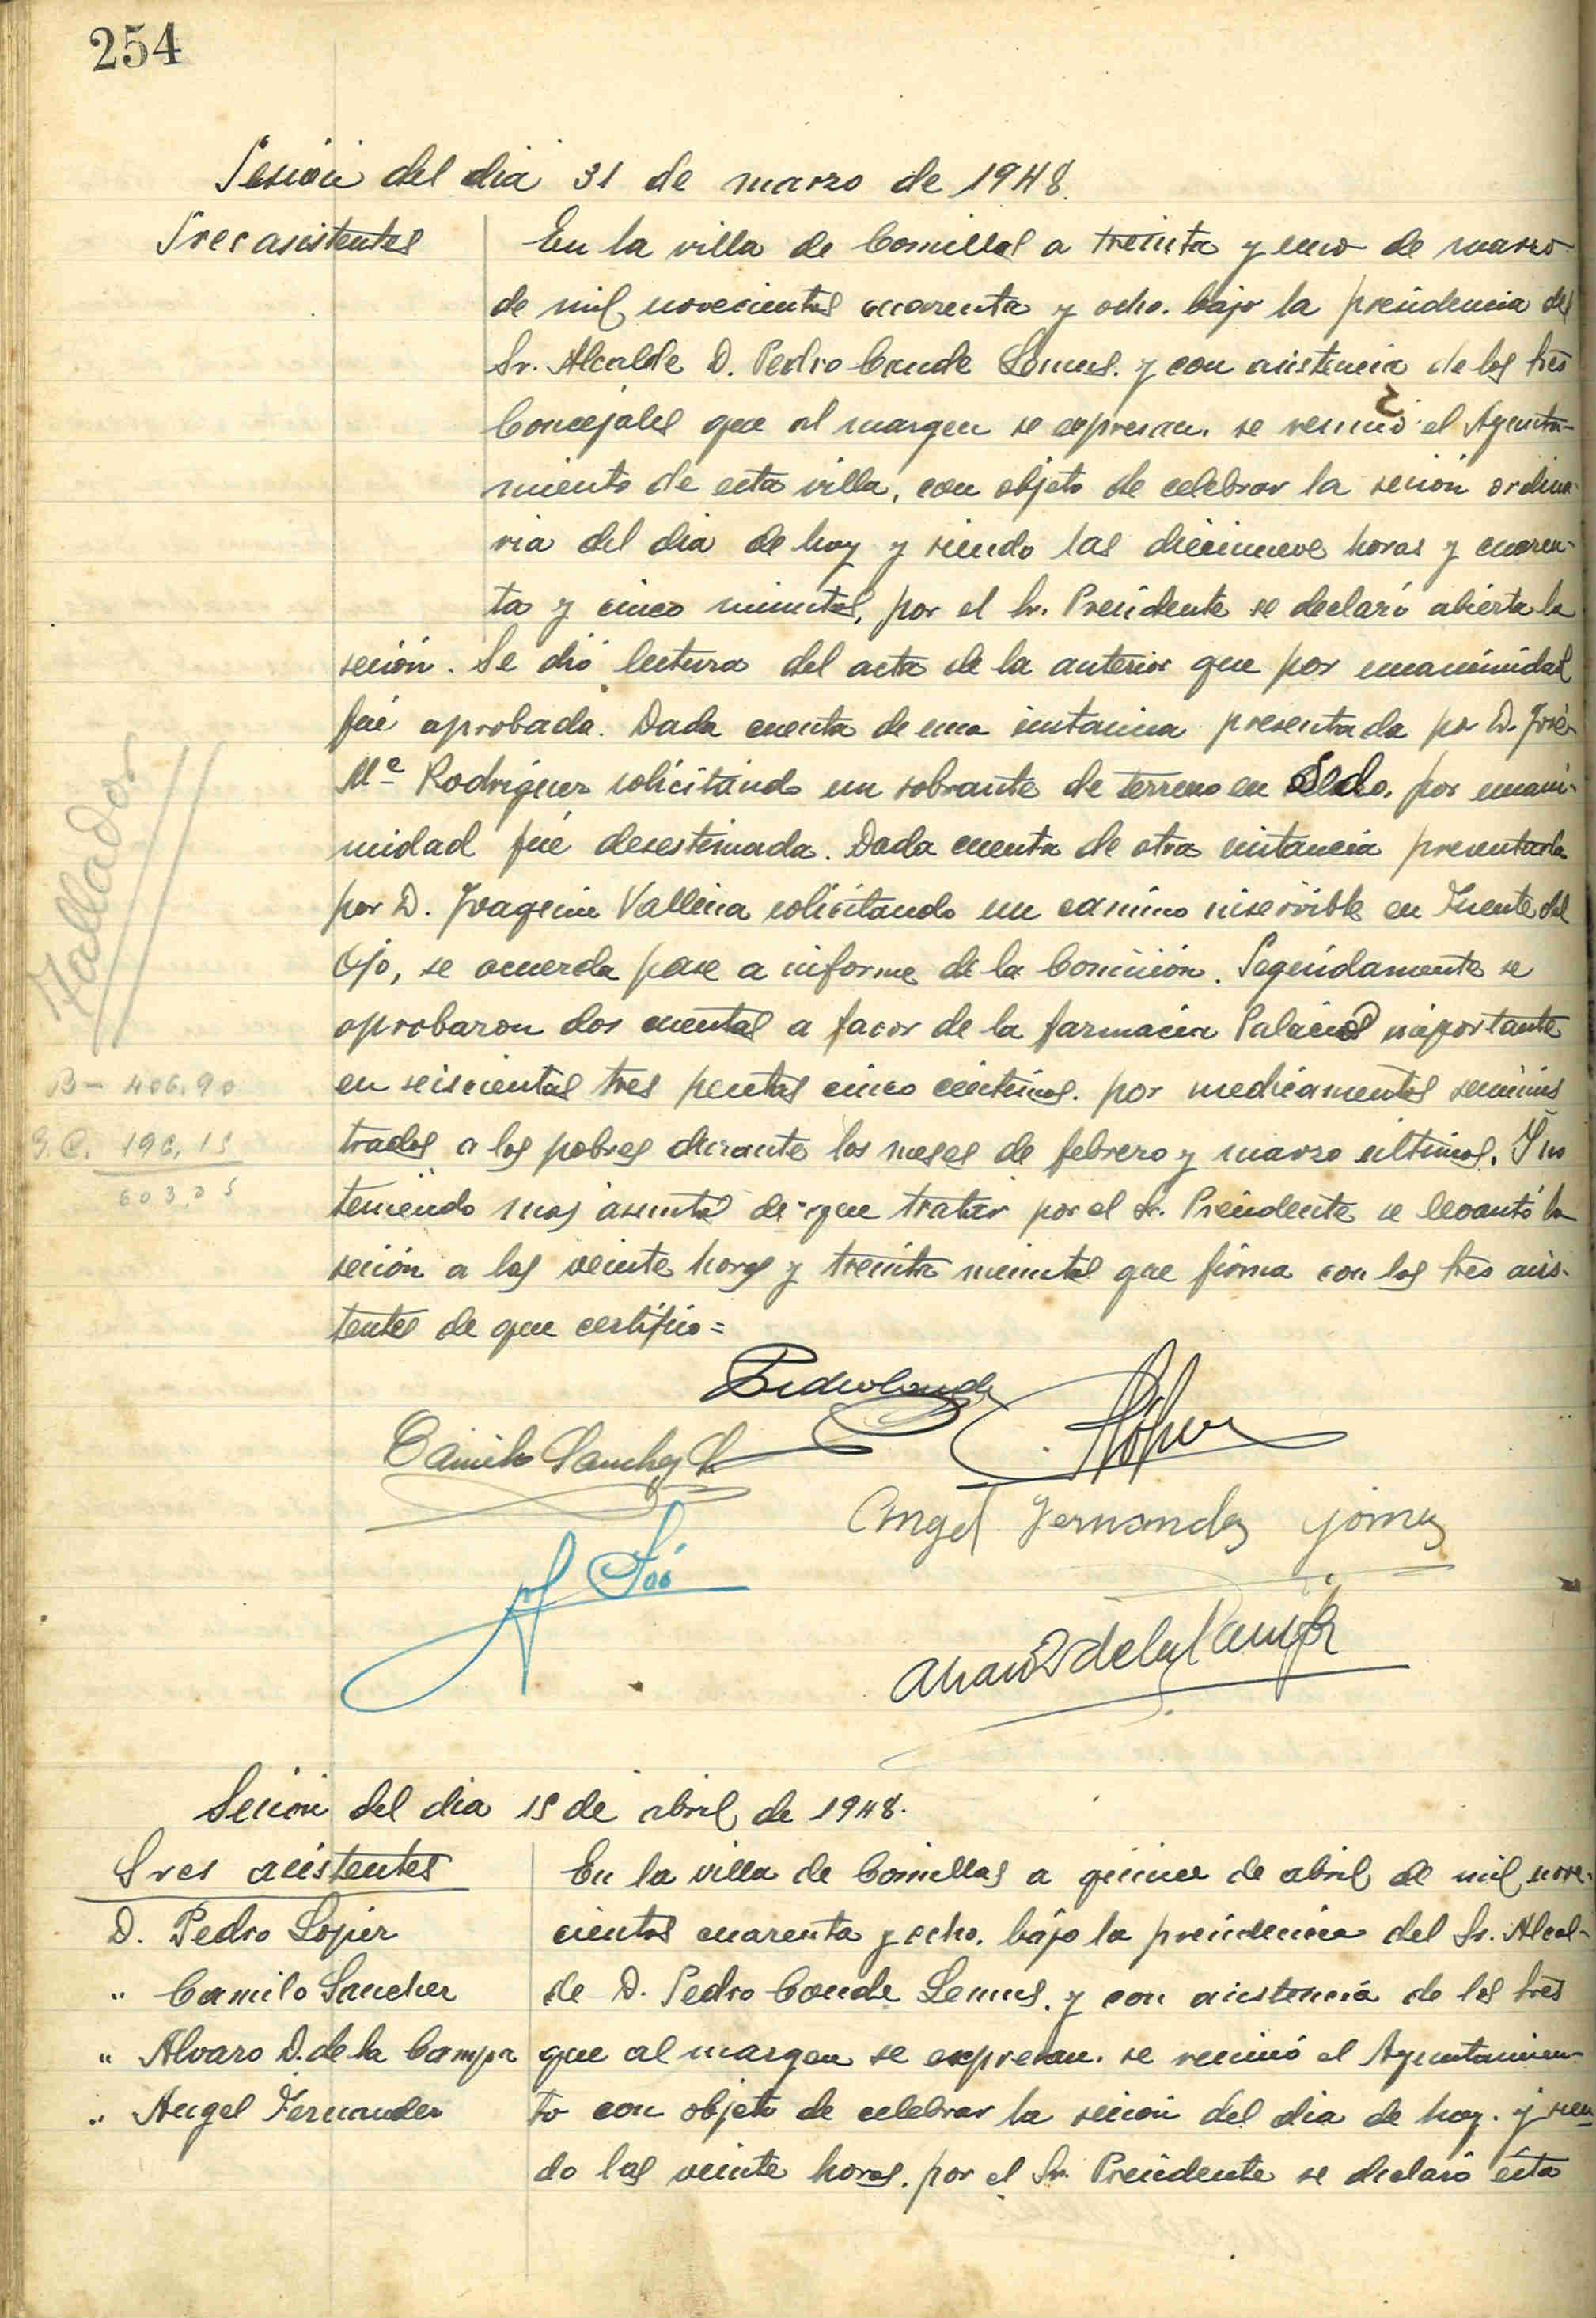 254
Sesión del dia 31 de marzo de 1948.
Sres asistentes
En la villa de Comillas a treinta y uno de marzo
de mil novecientos cuarenta y ocho. bajo la presidencia del
Sr. Alcalde D. Pedro Conde Lemus. y con asistencia de los Sres
Concejales que al margen se expresan. se reunió el Ayunta-
miento de esta villa, con objeto de celebrar la sesión ordina-
ria del dia de hoy y siendo las diecinueve horas y cuaren-
ta y cinco minutos, por el Sr. Presidente se declaró abierta la
sesión. Se dió lectura del acta de la anterior que por unanimidad
fué aprobada. Dada cuenta de una instancia presentada por D. José
Mª Rodríguez solicitando un sobrante de terreno en por unani-
midad fué desestimada. Dada cuenta de otra instancia presentada
por D. Joaquin Vallina solicitando un camino inservible en Fuente del
Ojo, se acuerda pase a informe de la Comisión. Seguidamente se
aprobaron dos cuentas a favor de la farmacia Palacios importante
en seiscientas tres pesetas cinco céntimos. por medicamentos suminis
trados a los pobres durante los meses de febrero y marzo últimos. Y no
teniendo mas asuntos de que tratar por el Sr. Presidente se levantó la
sesión a las veinte horas y treinta minutos que firma con los Sres asis-
tentes de que certifico=
Fallador
B- 406.90
S.C. 196.15
603.05
Pedro Conde
Camilo Sanchez
Angel Fernandez Gómez
Alvaro D de la Campa
Sesión del dia 15 de abril de 1948.
Sres asistentes
D. Pedro Lopez
" Camilo Sanchez
" Alvaro D. de la Campa
" Angel Fernandez
En la villa de Comillas a quince de abril de mil nove-
cientos cuarenta y ocho. bajo la presidencia del Sr. Alcal-
de D. Pedro Conde Lemus. y con asistencia de los Sres
que al margen se expresan. se reunió el Ayuntamien-
to con objeto de celebrar la sesión del dia de hoy. y sien
do las veinte horas. por el Sr. Presidente se declaró esta